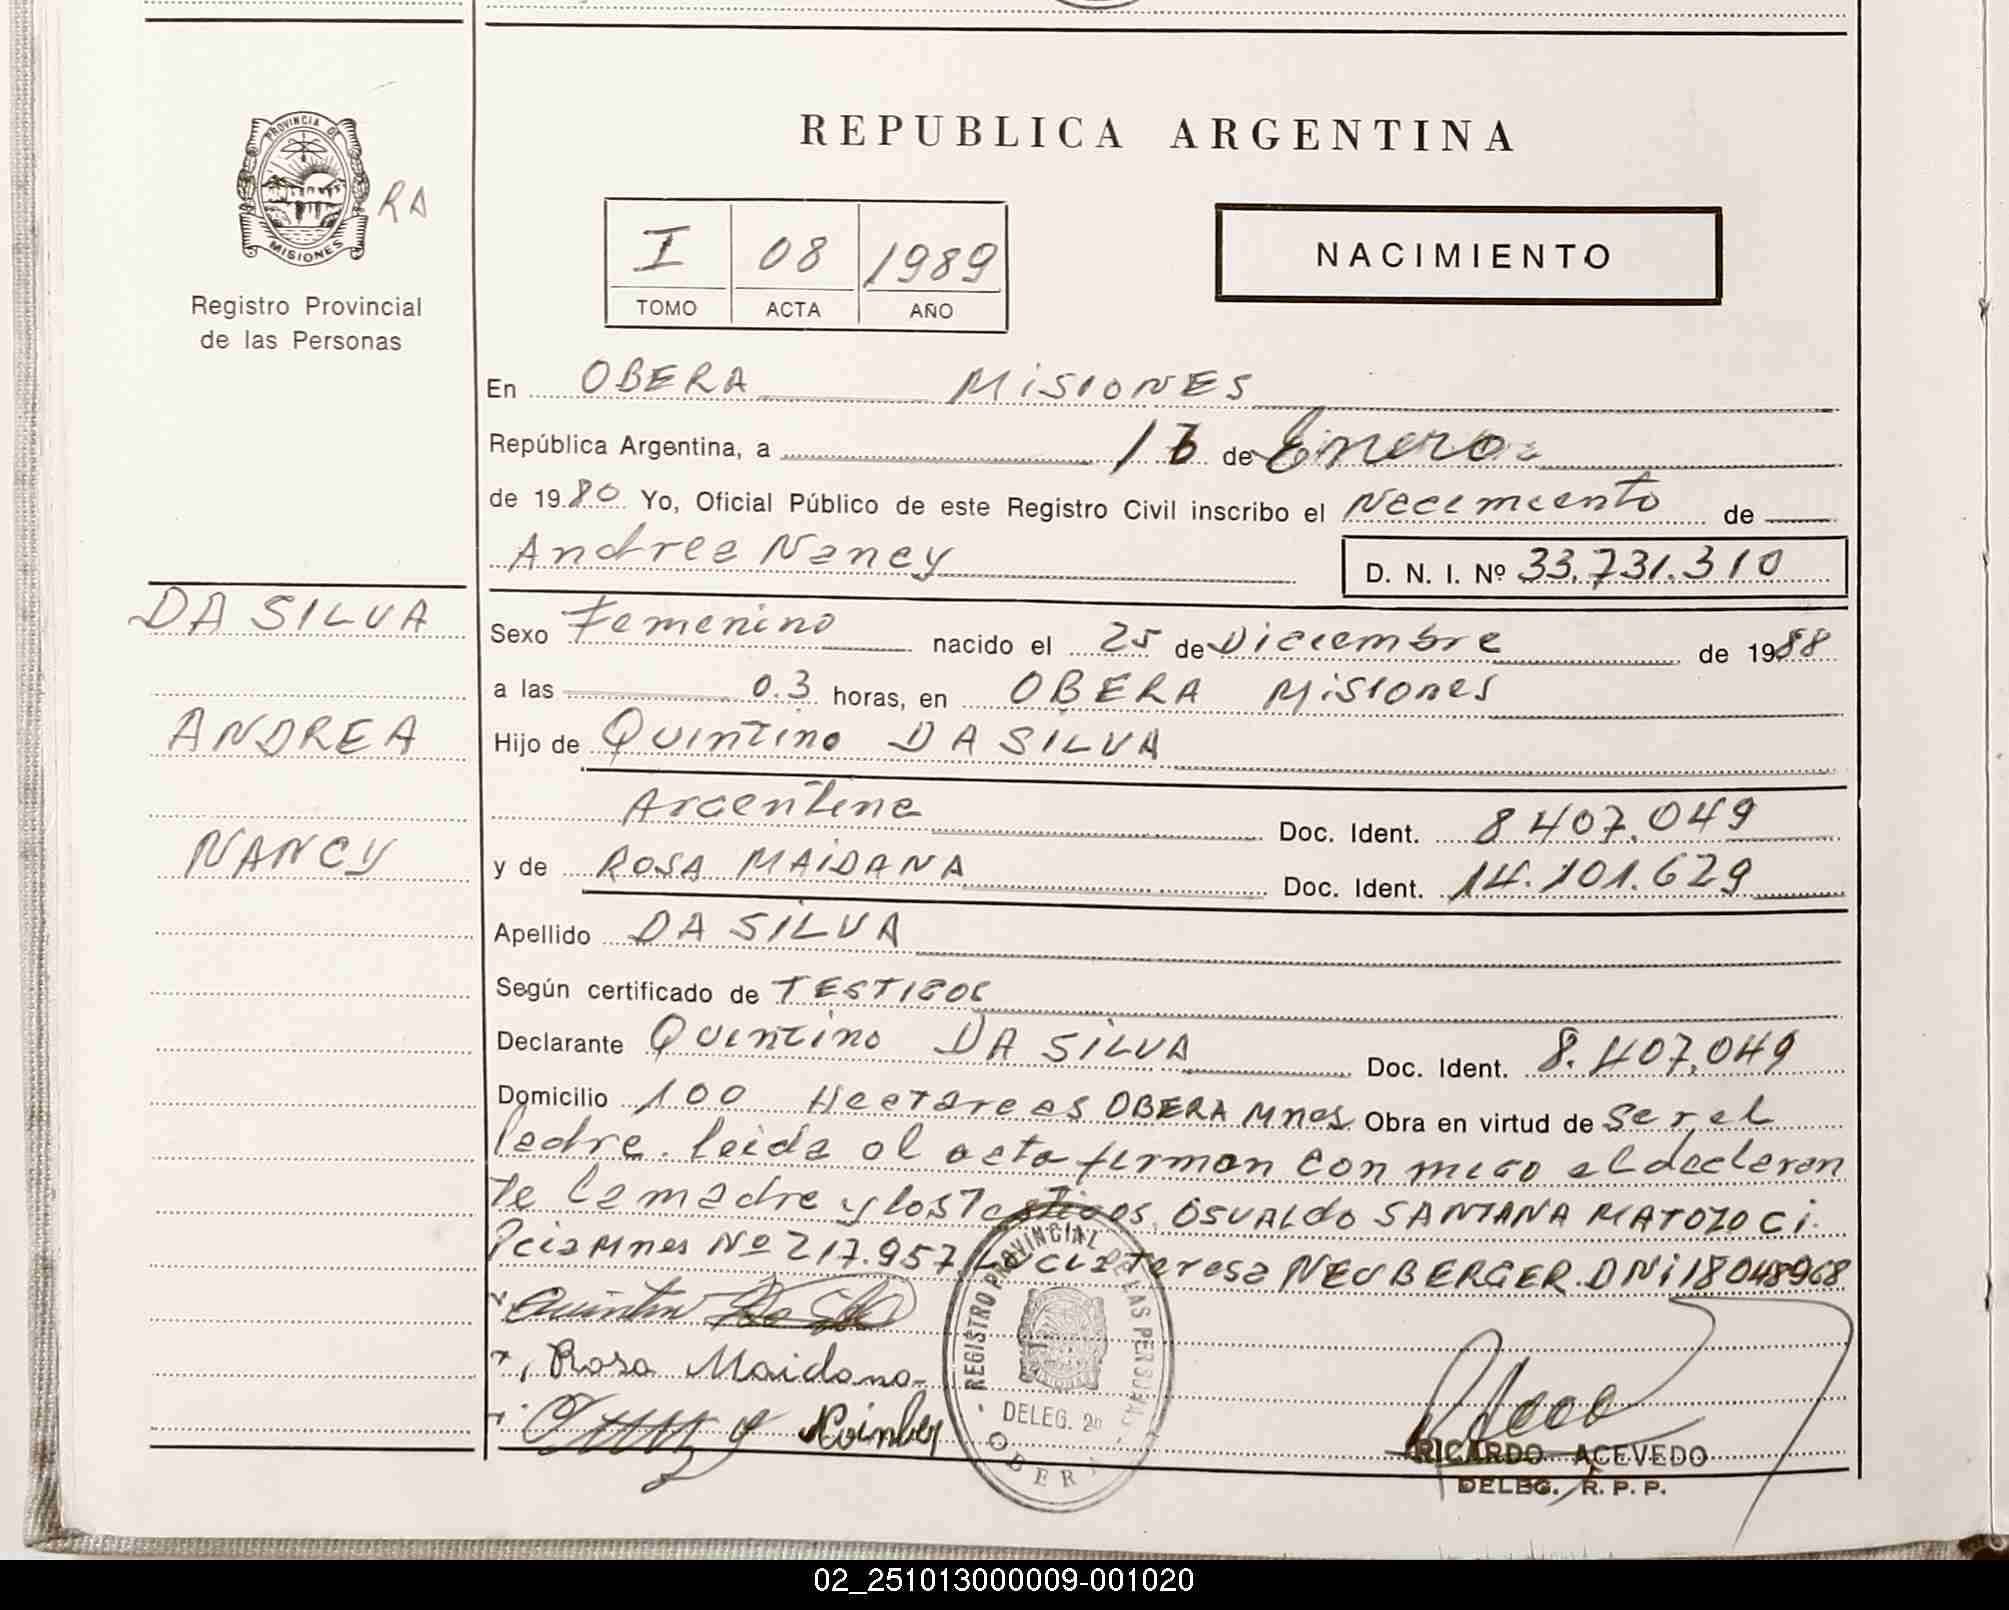 REPUBLICA ARGENTINA
PROVINCIA DE
MISIONES
RA
Registro Provincial
de las Personas
I 08 1989
TOMO ACTA AÑO
NACIMIENTO
En OBERA MISIONES
República Argentina, a 16 de Enero
de 1980 Yo, Oficial Público de este Registro Civil inscribo el Nacimiento de
Andrea Nancy D. N. I. Nº 33.731.310
DA SILVA
ANDREA
NANCY
Sexo Femenino nacido el 25 de Diciembre de 1988
a las 0.3 horas, en OBERA Misiones
Hijo de Quintino DA SILVA
Argentina Doc. Ident. 8.407.049
y de ROSA MAIDANA Doc. Ident. 14.101.629
Apellido DA SILVA
Según certificado de TESTIGOS
Declarante Quintino DA SILVA Doc. Ident. 8.407.049
Domicilio 100 Hectareas OBERA Mnes. Obra en virtud de Ser el
Padre. leida el acta firman con migo el declaran
te la madre y los Testigos. OSVALDO SANTANA MATOZO Ci.
Pcia Mnes Nº 217.957. Lucia Teresa NEUBERGER. DNi 18048968
Quintin Da Silva
Rosa Maidana
REGISTRO PROVINCIAL DE LAS PERSONAS
DELEG. 2a
OBERA
RICARDO ACEVEDO
DELEG. R. P. P.
02_251013000009-001020